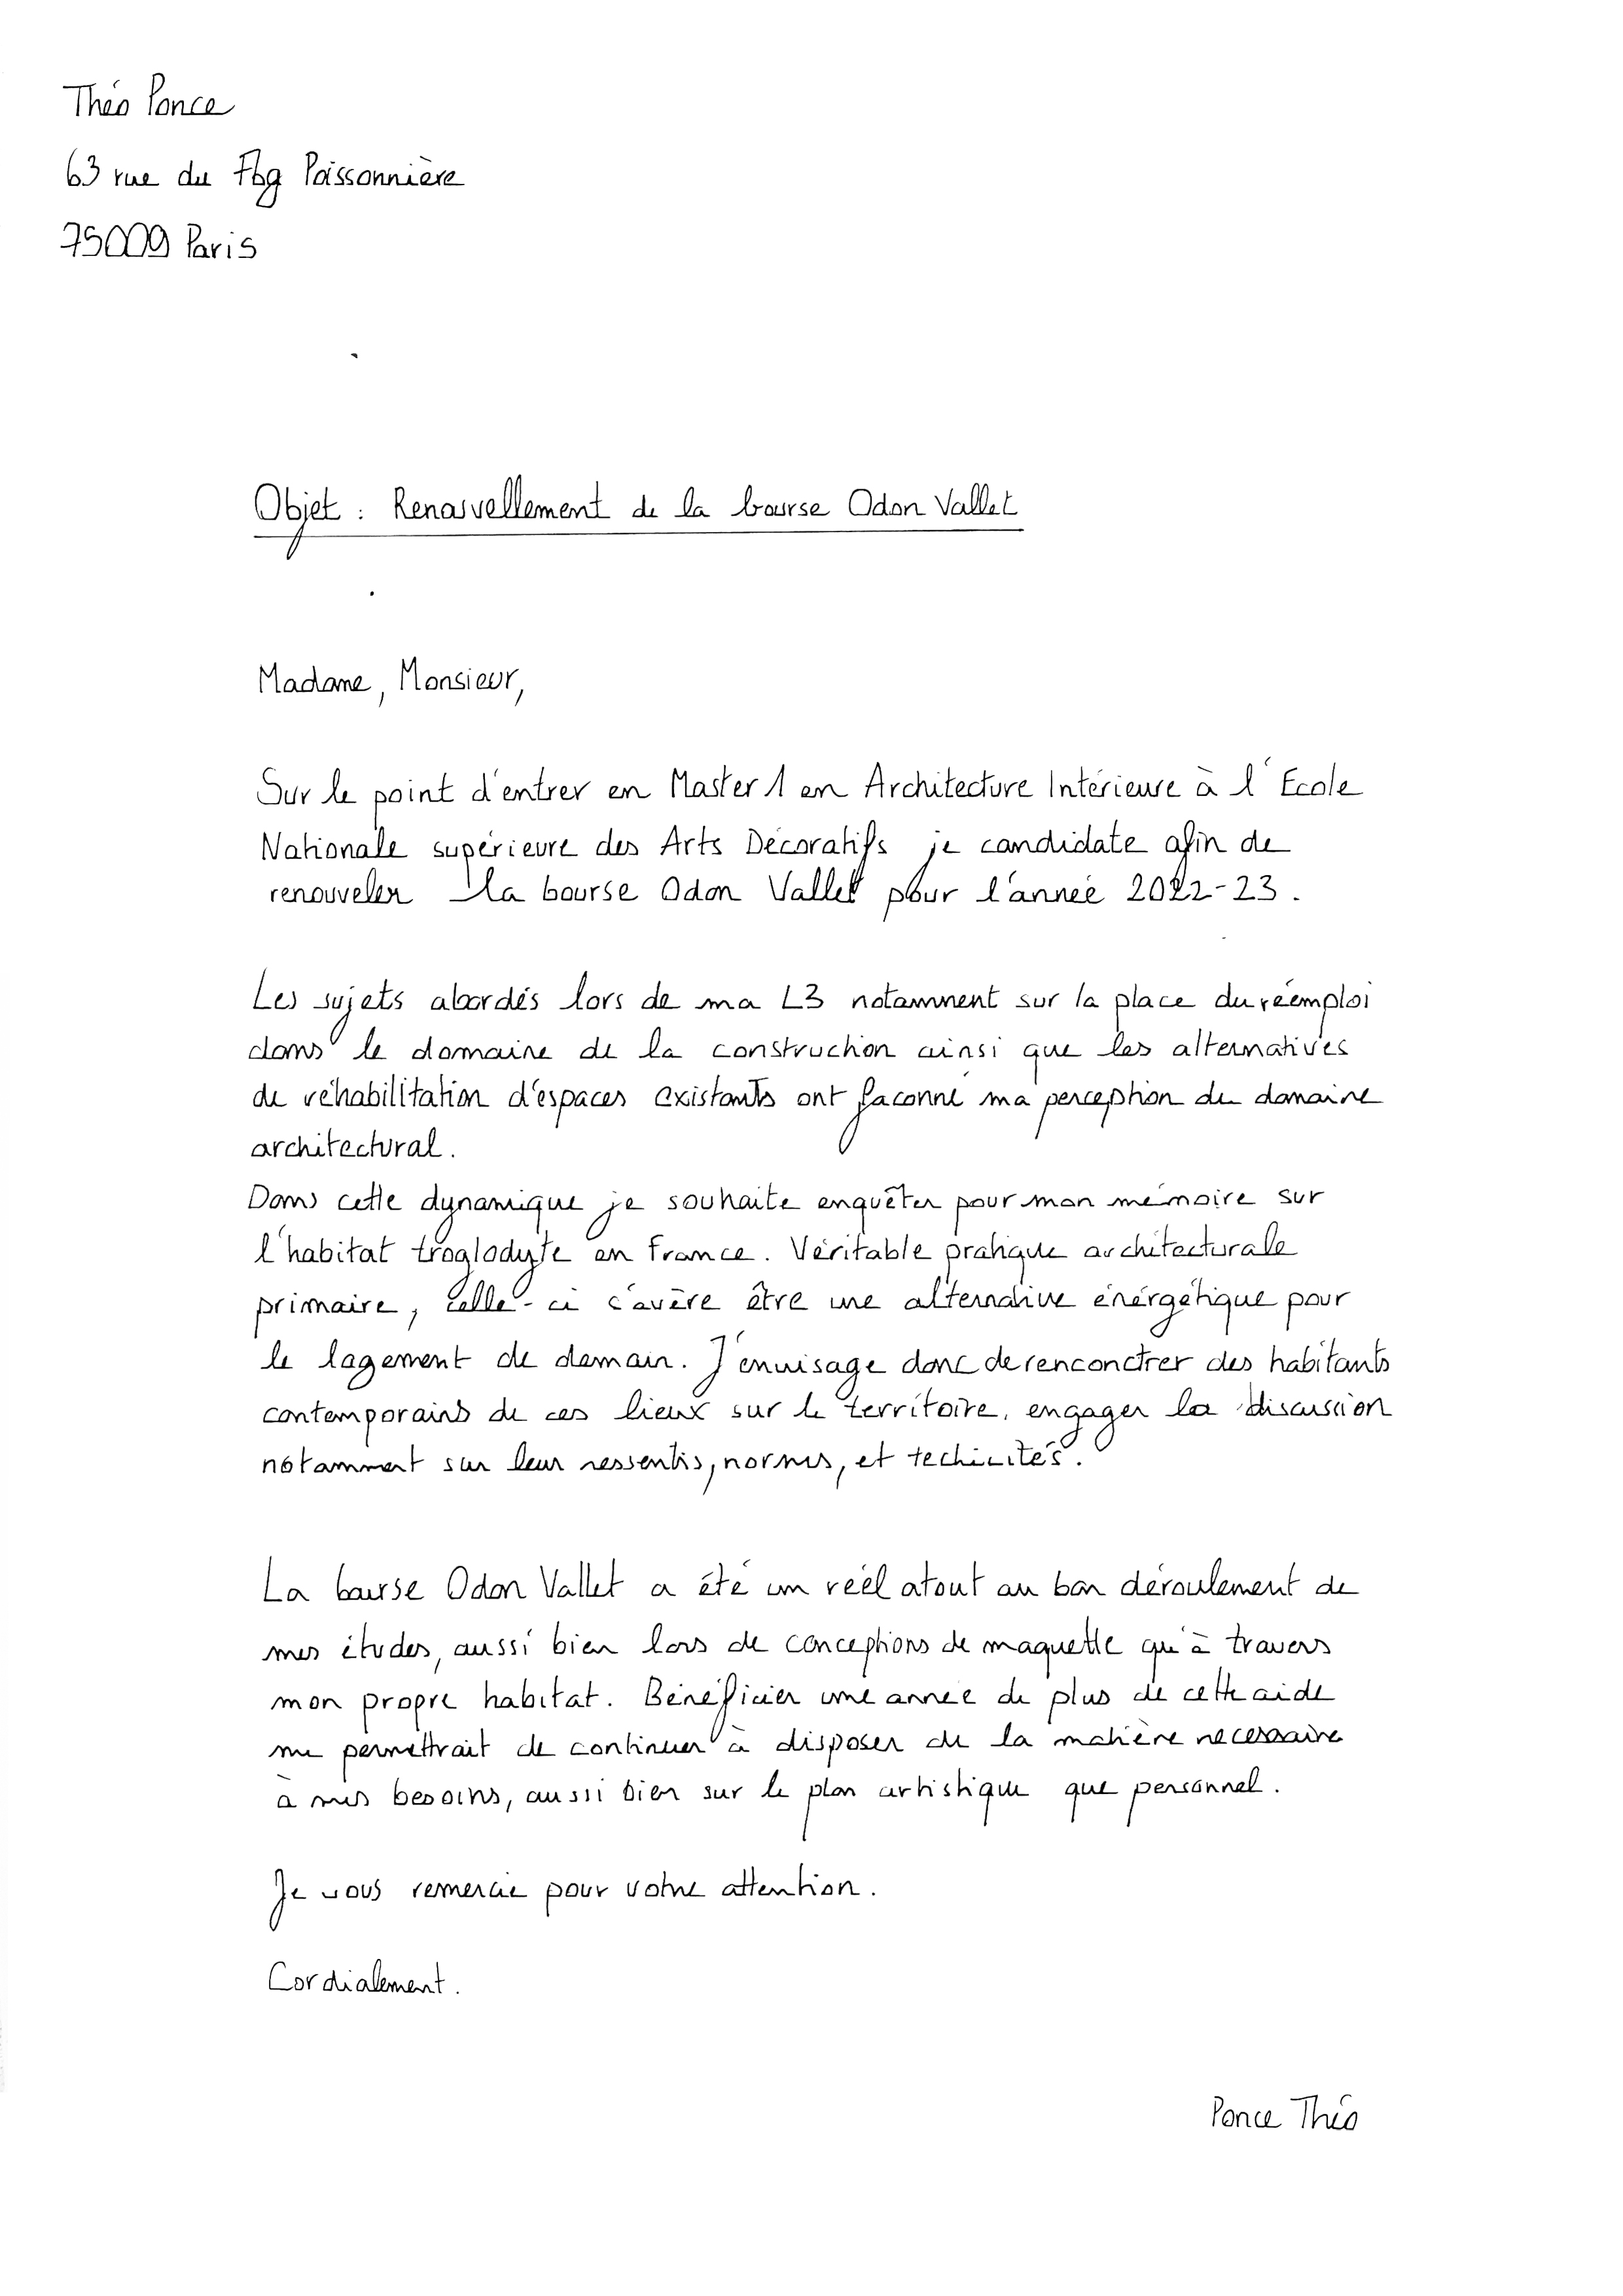 Théo Ponce
63 rue du Fbg Poissonnière
75009 Paris
Objet : Renouvellement de la bourse Odon Vallet
Madame, Monsieur,
Sur le point d'entrer en Master 1 en Architecture Intérieure à l'Ecole
Nationale supérieure des Arts Décoratifs je candidate afin de
renouveler la bourse Odon Vallet pour l'année 2022-23.
Les sujets abordés lors de ma L3 notamment sur la place du réemploi
dans le domaine de la construction ainsi que les alternatives
de réhabilitation d'espaces existants ont façonné ma perception du domaine
architectural.
Dans cette dynamique je souhaite enquêter pour mon mémoire sur
l'habitat troglodyte en France. Véritable pratique architecturale
primaire, celle-ci s'avère être une alternative énérgétique pour
le logement de demain. J'envisage donc de renconctrer des habitants
contemporains de ces lieux sur le territoire, engager la discussion
notamment sur leur ressentis, normes, et techicités.
La bourse Odon Vallet a été un réél atout au bon déroulement de
mes études, aussi bien lors de conceptions de maquette qu'à travers
mon propre habitat. Bénéficier une année de plus de cette aide
me permettrait de continuer à disposer de la matière nécessaire
à mes besoins, aussi bien sur le plan artistique que personnel.
Je vous remercie pour votre attention.
Cordialement.
Ponce Théo